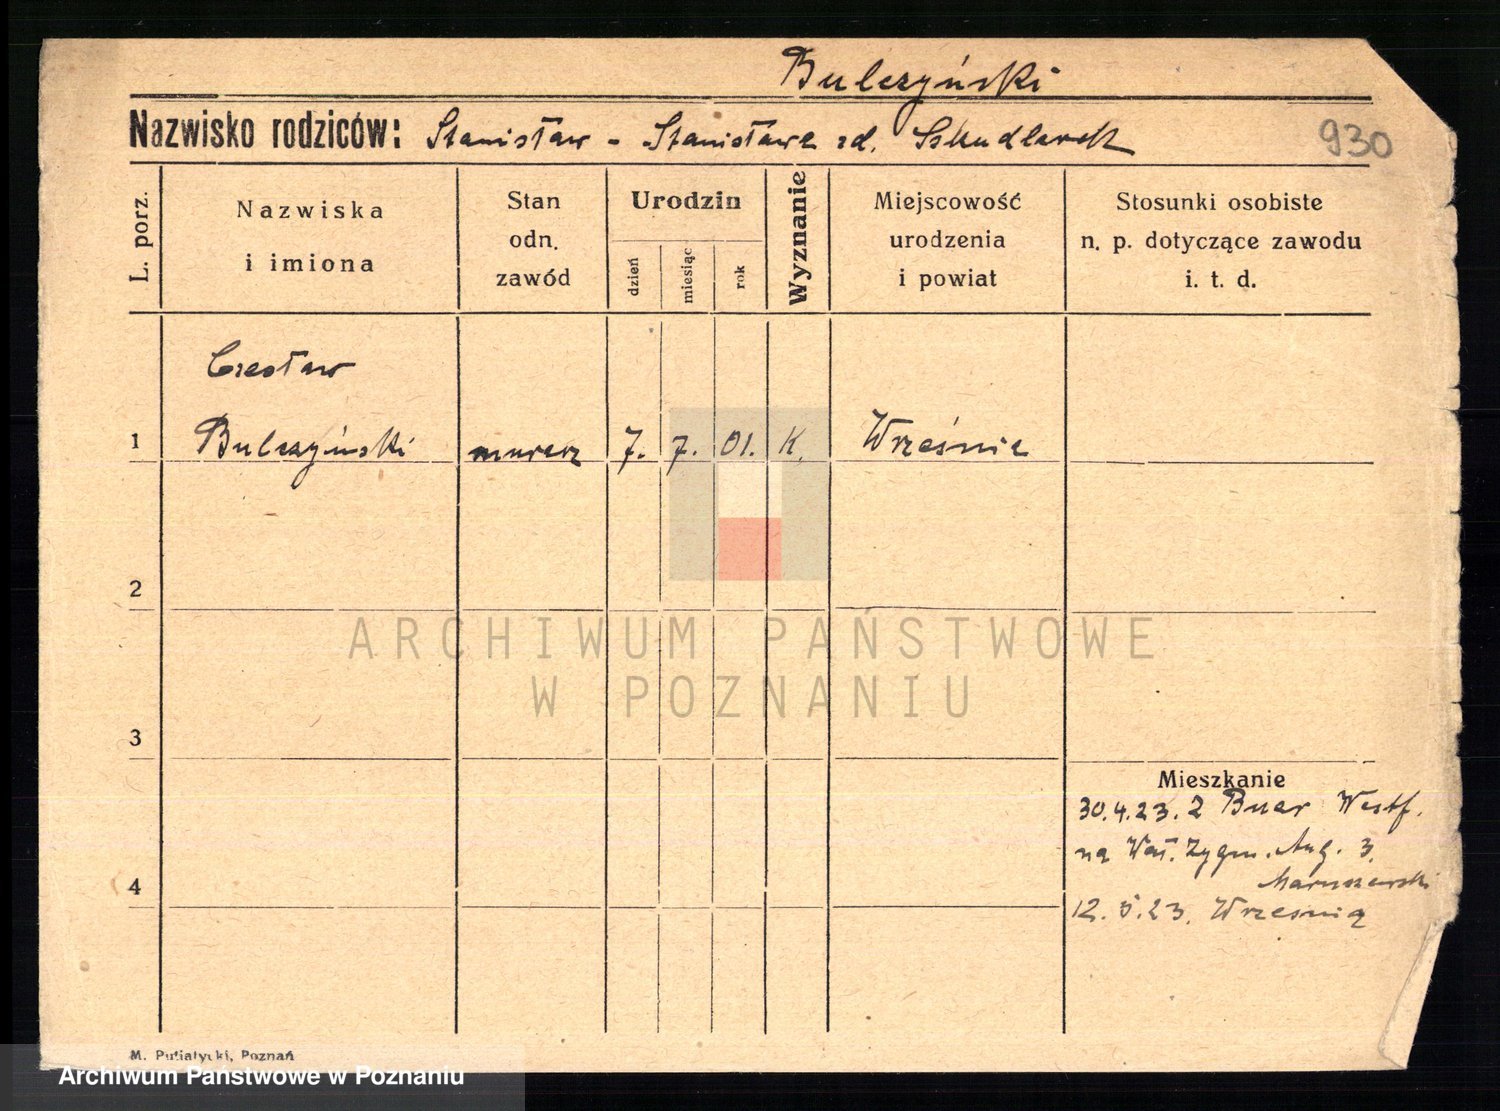 Bulczyński
Nazwisko rodziców: Stanisław - Stanisława zd. Szkudlarek
930
L. porz.
Nazwiska
i imiona
Stan
odn.
zawód
Urodzin
dzień
miesiąc
rok
Wyznanie
Miejscowość
urodzenia
i powiat
Stosunki osobiste
n. p. dotyczące zawodu
i. t. d.
Czesław
1 Bulczyński murarz 7. 7. 01. K. Września
2
ARCHIWUM PAŃSTWOWE
W POZNANIU
3
Mieszkanie
30.4.23. z Buer Westf.
na Wał. Zygm. Aug. 3.
Maruszewski
4
12.5.23. Września
M. Putiatycki, Poznań
Archiwum Państwowe w Poznaniu